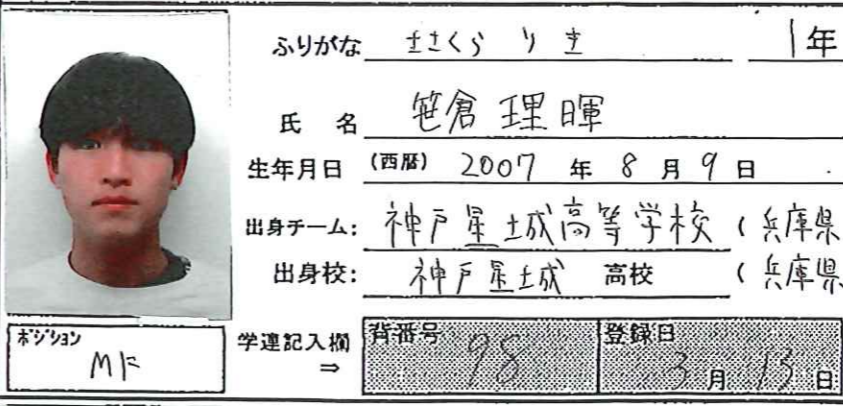 ふりがな ささくら りき 1年
氏 名 笹倉 理暉
生年月日 (西暦) 2007 年 8 月 9 日
出身チーム: 神戸星城高等学校 (兵庫県
出身校: 神戸星城 高校 (兵庫県
ポジション
MF
学連記入欄
⇒
背番号
98
登録日
3月13日